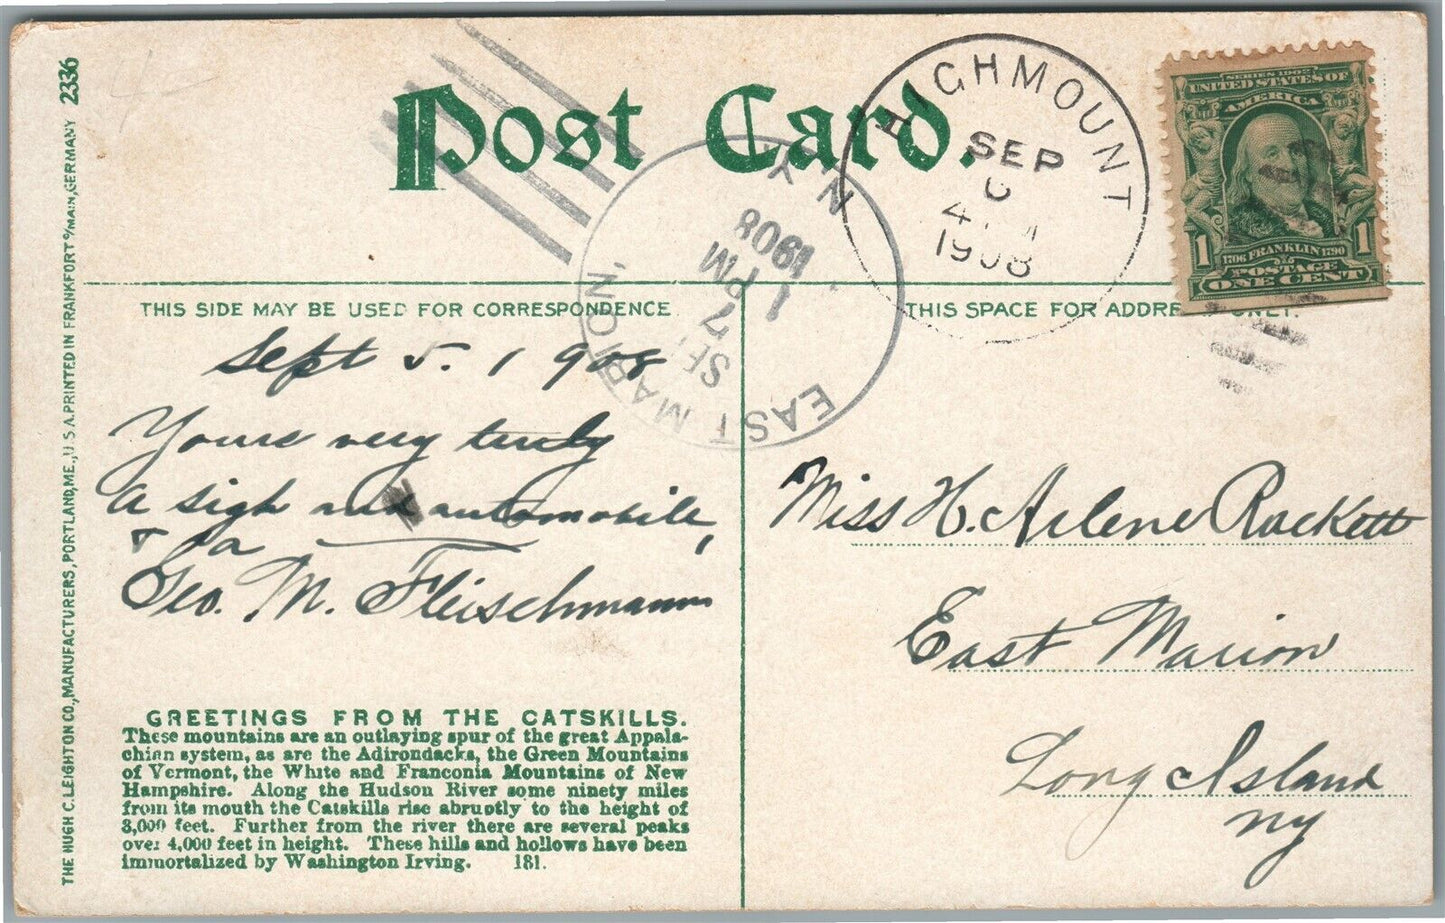 Post Card.
HIGHMOUNT
SEP
4
1908
EAST MARION,
N.Y.
SEP
7
1 PM
1908
SERIES 1902
UNITED STATES OF
AMERICA
1 1706 FRANKLIN 1790 1
POSTAGE
ONE CENT
THIS SIDE MAY BE USED FOR CORRESPONDENCE
THIS SPACE FOR ADDRE ONLY.
Sept 5. 1908
Yours very truly
A sigh automobile,
Geo. M. Fleischmann
Miss H. Arlene Rackett
East Marion
Long Island
NY
GREETINGS FROM THE CATSKILLS.
These mountains are an outlaying spur of the great Appala-
chian system, as are the Adirondacks, the Green Mountains
of Vermont, the White and Franconia Mountains of New
Hampshire. Along the Hudson River some ninety miles
from its mouth the Catskills rise abruptly to the height of
3,000 feet. Further from the river there are several peaks
over 4,000 feet in height. These hills and hollows have been
immortalized by Washington Irving. 181.
THE HUGH C. LEIGHTON CO., MANUFACTURERS, PORTLAND, ME., U.S.A. PRINTED IN FRANKFORT o/MAIN, GERMANY 2336